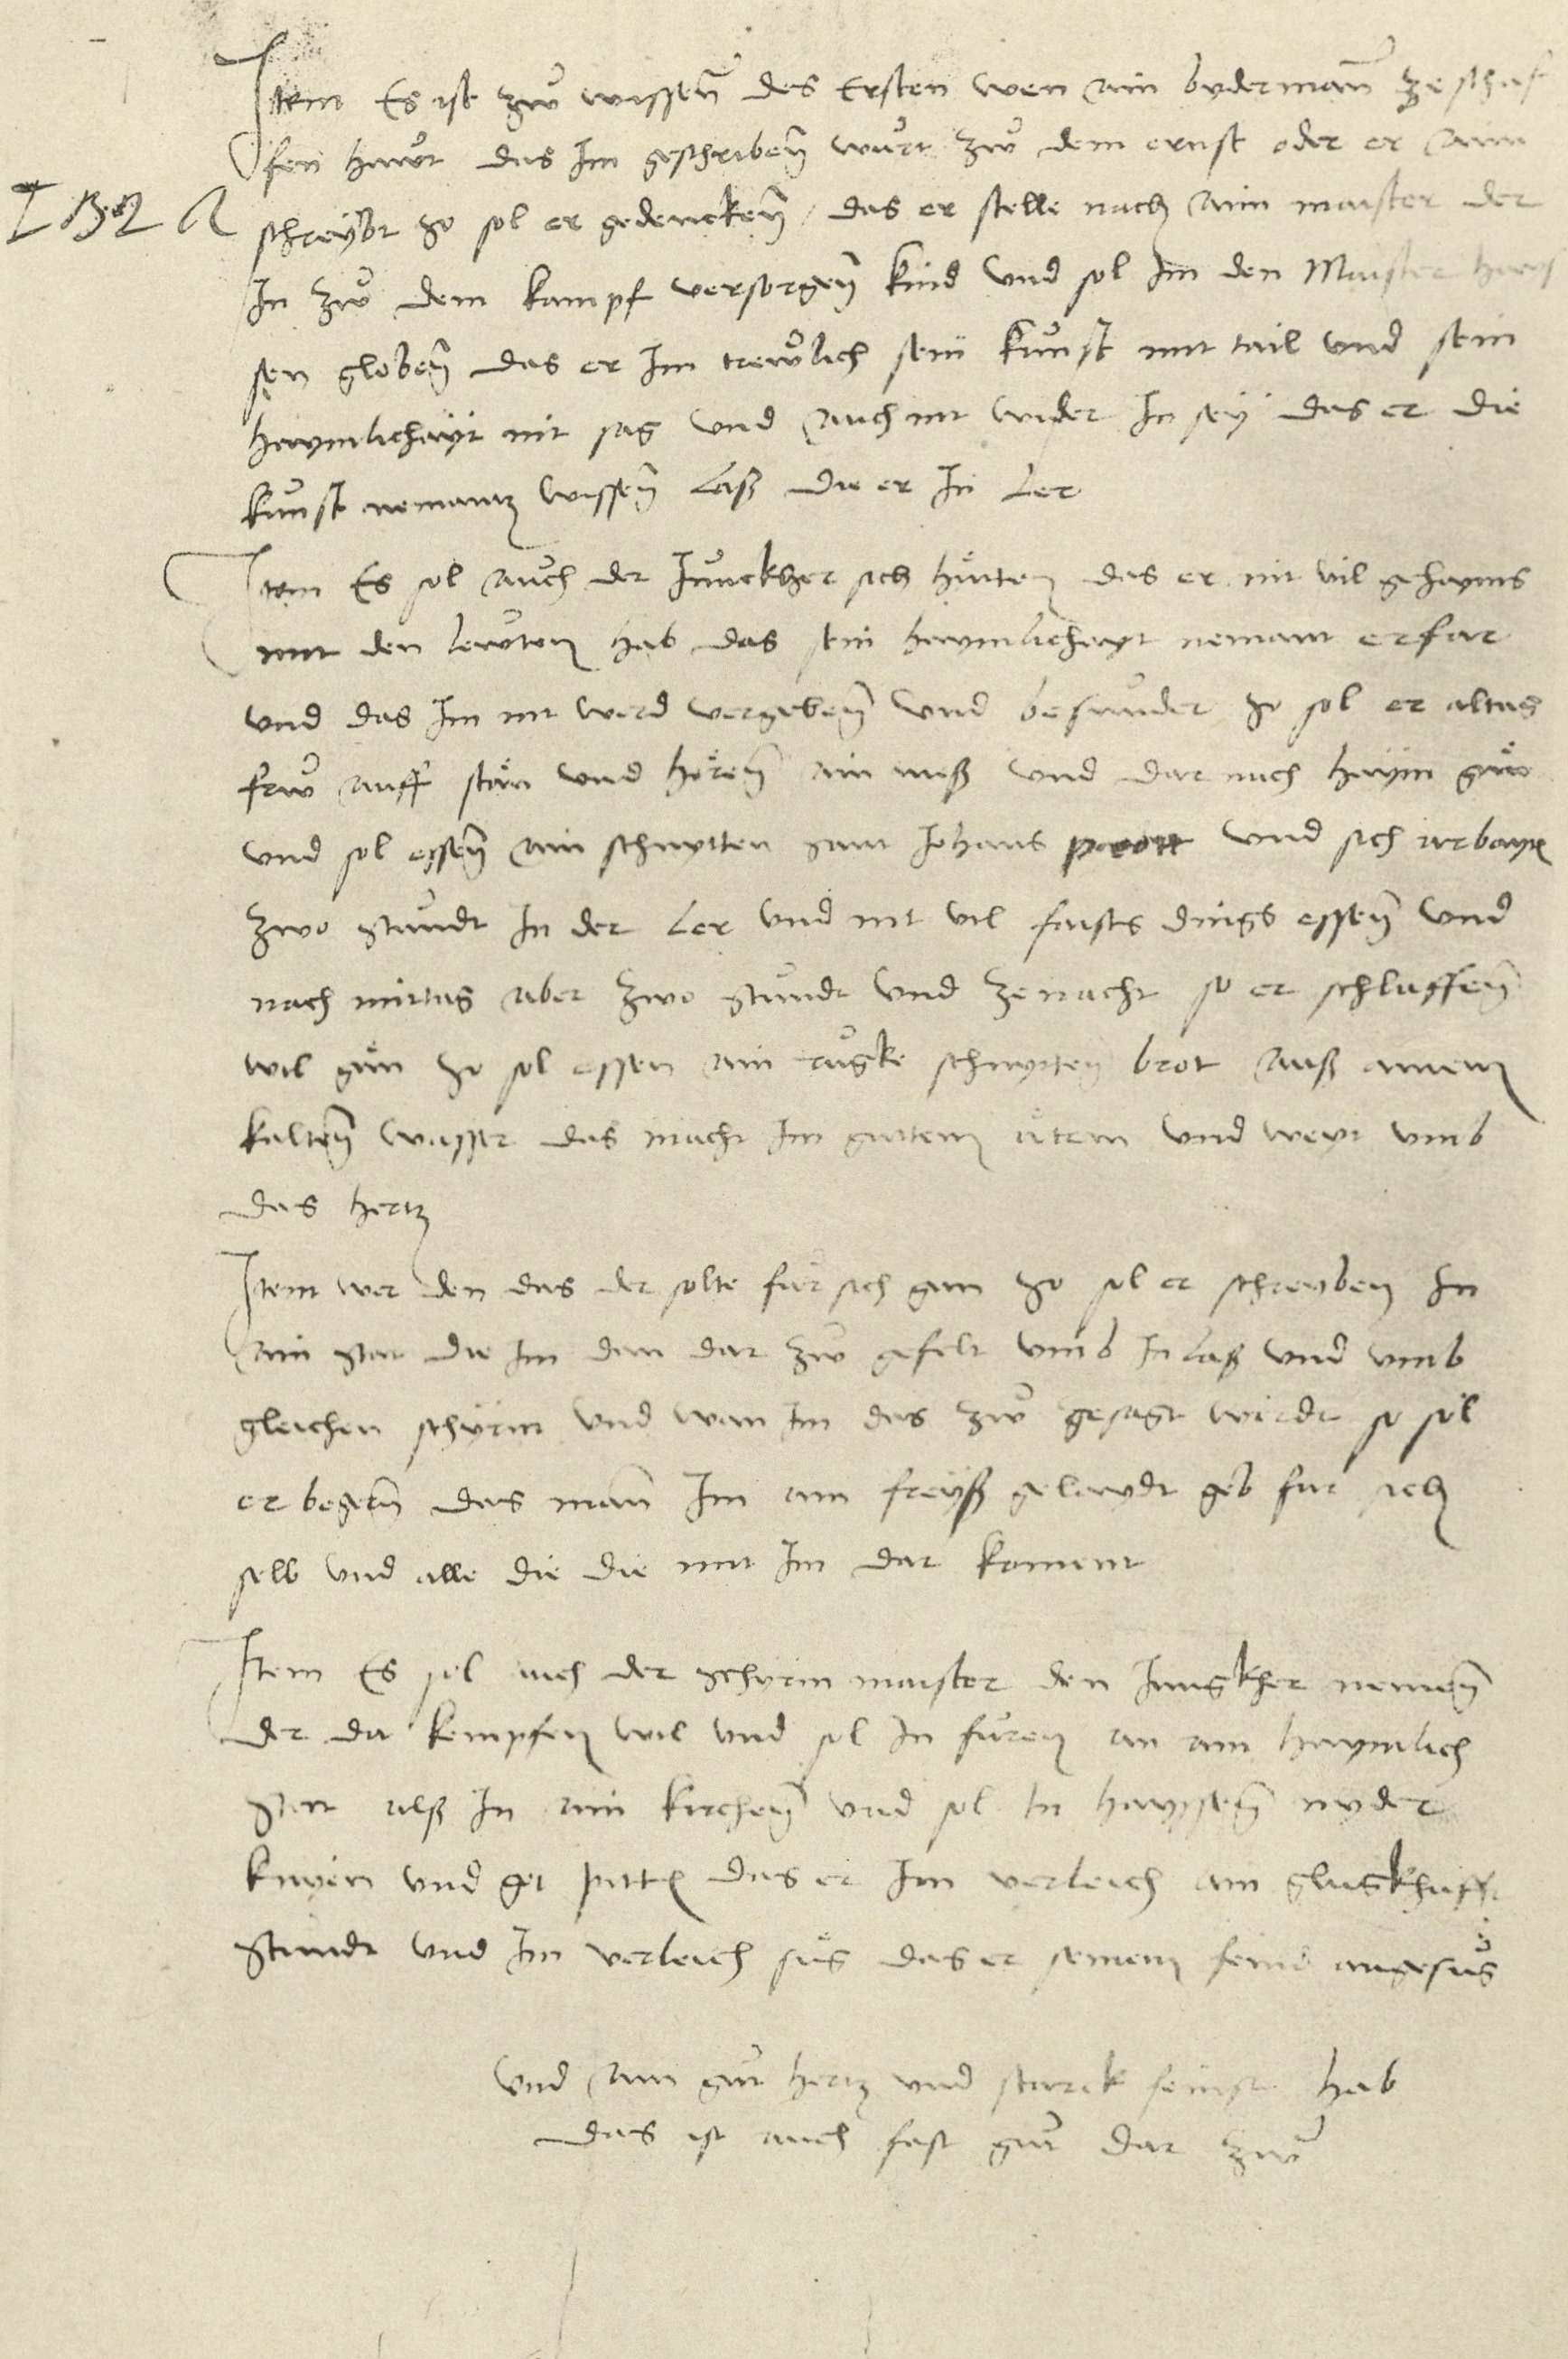 Item Es ist zw̃ wissen̄ des Ersten wen ain bydermañ ze schaf
fen hawt das Im geschriben̄ wurt zw̃ dem ernst oder er aim
schreybt so sol er gedencken̄ / das er stelle nach aim maister der
In zw̃ dem kampf versorgen̄ kind und sol im den Maister hays
sen globen̄ das er Im trewlich sein kunst mit tail und sein
haymlichayt nit sag und auch nit wider In sey das er die
kunst nemantz wissen̄ laß die er In Ler
Item Es sol auch der Junckher sich hüiten das er nit vil gehayms
mit den lewten hab das sein haymlichayt nemant erfar
und das Im nit werd vergeben̄ und besunder so sol er altag
frw̃ auff stän und hören̄ ain meß und dar nach haym gän
und sol essen̄ ain schnytten sant Johans prott und sich arbayten
zwo stundt In der Ler und nit vil faists dings essen̄ und
nach mittag aber zwo stundt und ze nacht so er schlaffen̄
wil gän so sol essen ain rugke schnytten brot auß ainem
kalten̄ wasser das macht Im guten ätem und weyt umb
das hertz
Item wer den das der solte für sich gan so sol er schreyben In
ain stat die Im dan dar zw̃ gefelt umb In laß und umb
gleichen schyrm und wan Im das zw̃ gesagt wirdt so sol
er begern̄ das mañ Im ain freyß gelaydt geb fur sich
selb und alle die die mit Im dar koment
Item Es sol auch der schyrm maister den Jungkher nemen̄
der da kempfen wil und sol In füren an ain haymlich
stett alß In ain kirchen̄ und sol In hayssen̄ nyder
knyen und got pitten das er Im verleich ain glugkhafft
stundt und Im verleich sig das er seinem feind angesig
und ain gut hertz und starck feinst hab
das ist auch fast gut dar zw̃